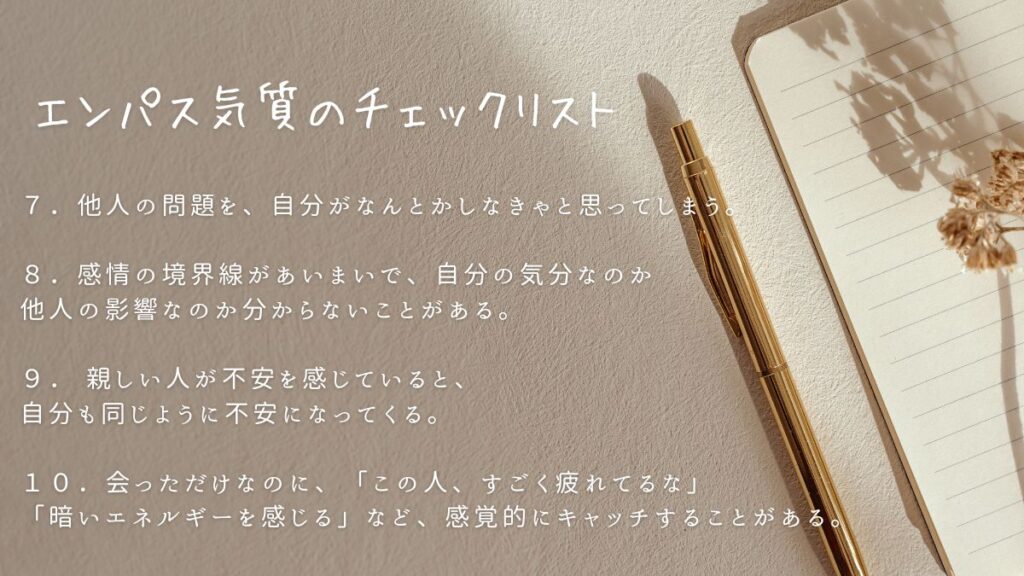 エンパス気質のチェックリスト
７．他人の問題を、自分がなんとかしなきゃと思ってしまう。
８．感情の境界線があいまいで、自分の気分なのか
他人の影響なのか分からないことがある。
９． 親しい人が不安を感じていると、
自分も同じように不安になってくる。
１０．会っただけなのに、「この人、すごく疲れてるな」
「暗いエネルギーを感じる」など、感覚的にキャッチすることがある。